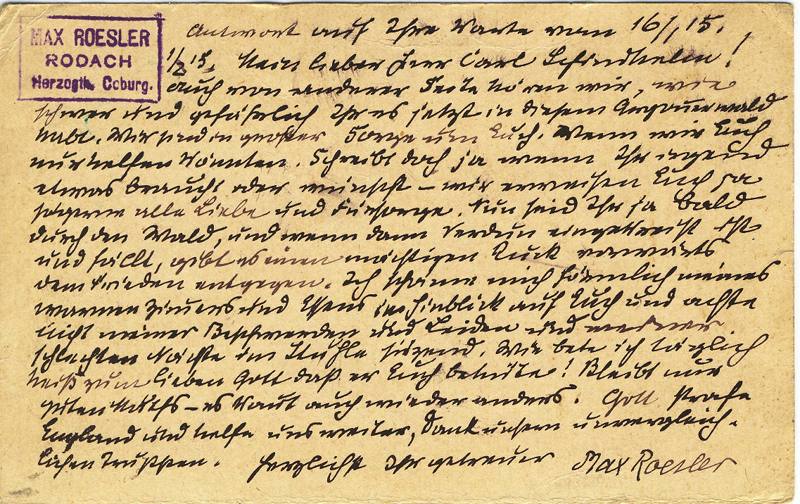 MAX ROESLER
RODACH
Herzogth. Coburg.
Antwort auf Ihre Karte vom 16/1,15.
1/2 15. Mein lieber Herr Carl Schindhelm!
Auch von anderer Seite hören wir, wie
schwer und gefährlich Ihr es jetzt in diesem Argonnerwald
habt. Wir sind in großer Sorge um Euch. Wenn wir Euch
nur helfen könnten. Schreibt doch ja wenn Ihr irgend
etwas braucht oder wünscht – wir erweisen Euch ja
so gerne alle Liebe und Fürsorge. Nun seid Ihr ja bald
durch den Wald, und wenn dann Verdun eingekreist ist
und fällt, gibt es einen mächtigen Ruck vorwärts
dem Frieden entgegen. Ich schäme mich förmlich meines
warmen Zimmers und Essens im Hinblick auf Euch und achte
nicht meiner Beschwerden und Leiden und meiner
schlechten Nächte im Stuhle sitzend. Wie bete ich täglich
heiß zum lieben Gott daß er Euch behüte! Bleibt nur
guten Muths – es kommt auch wieder anders. Gott strafe
England und helfe uns weiter, Dank unsern unvergleich-
lichen Truppen. Herzlichst Ihr getreuer Max Roesler